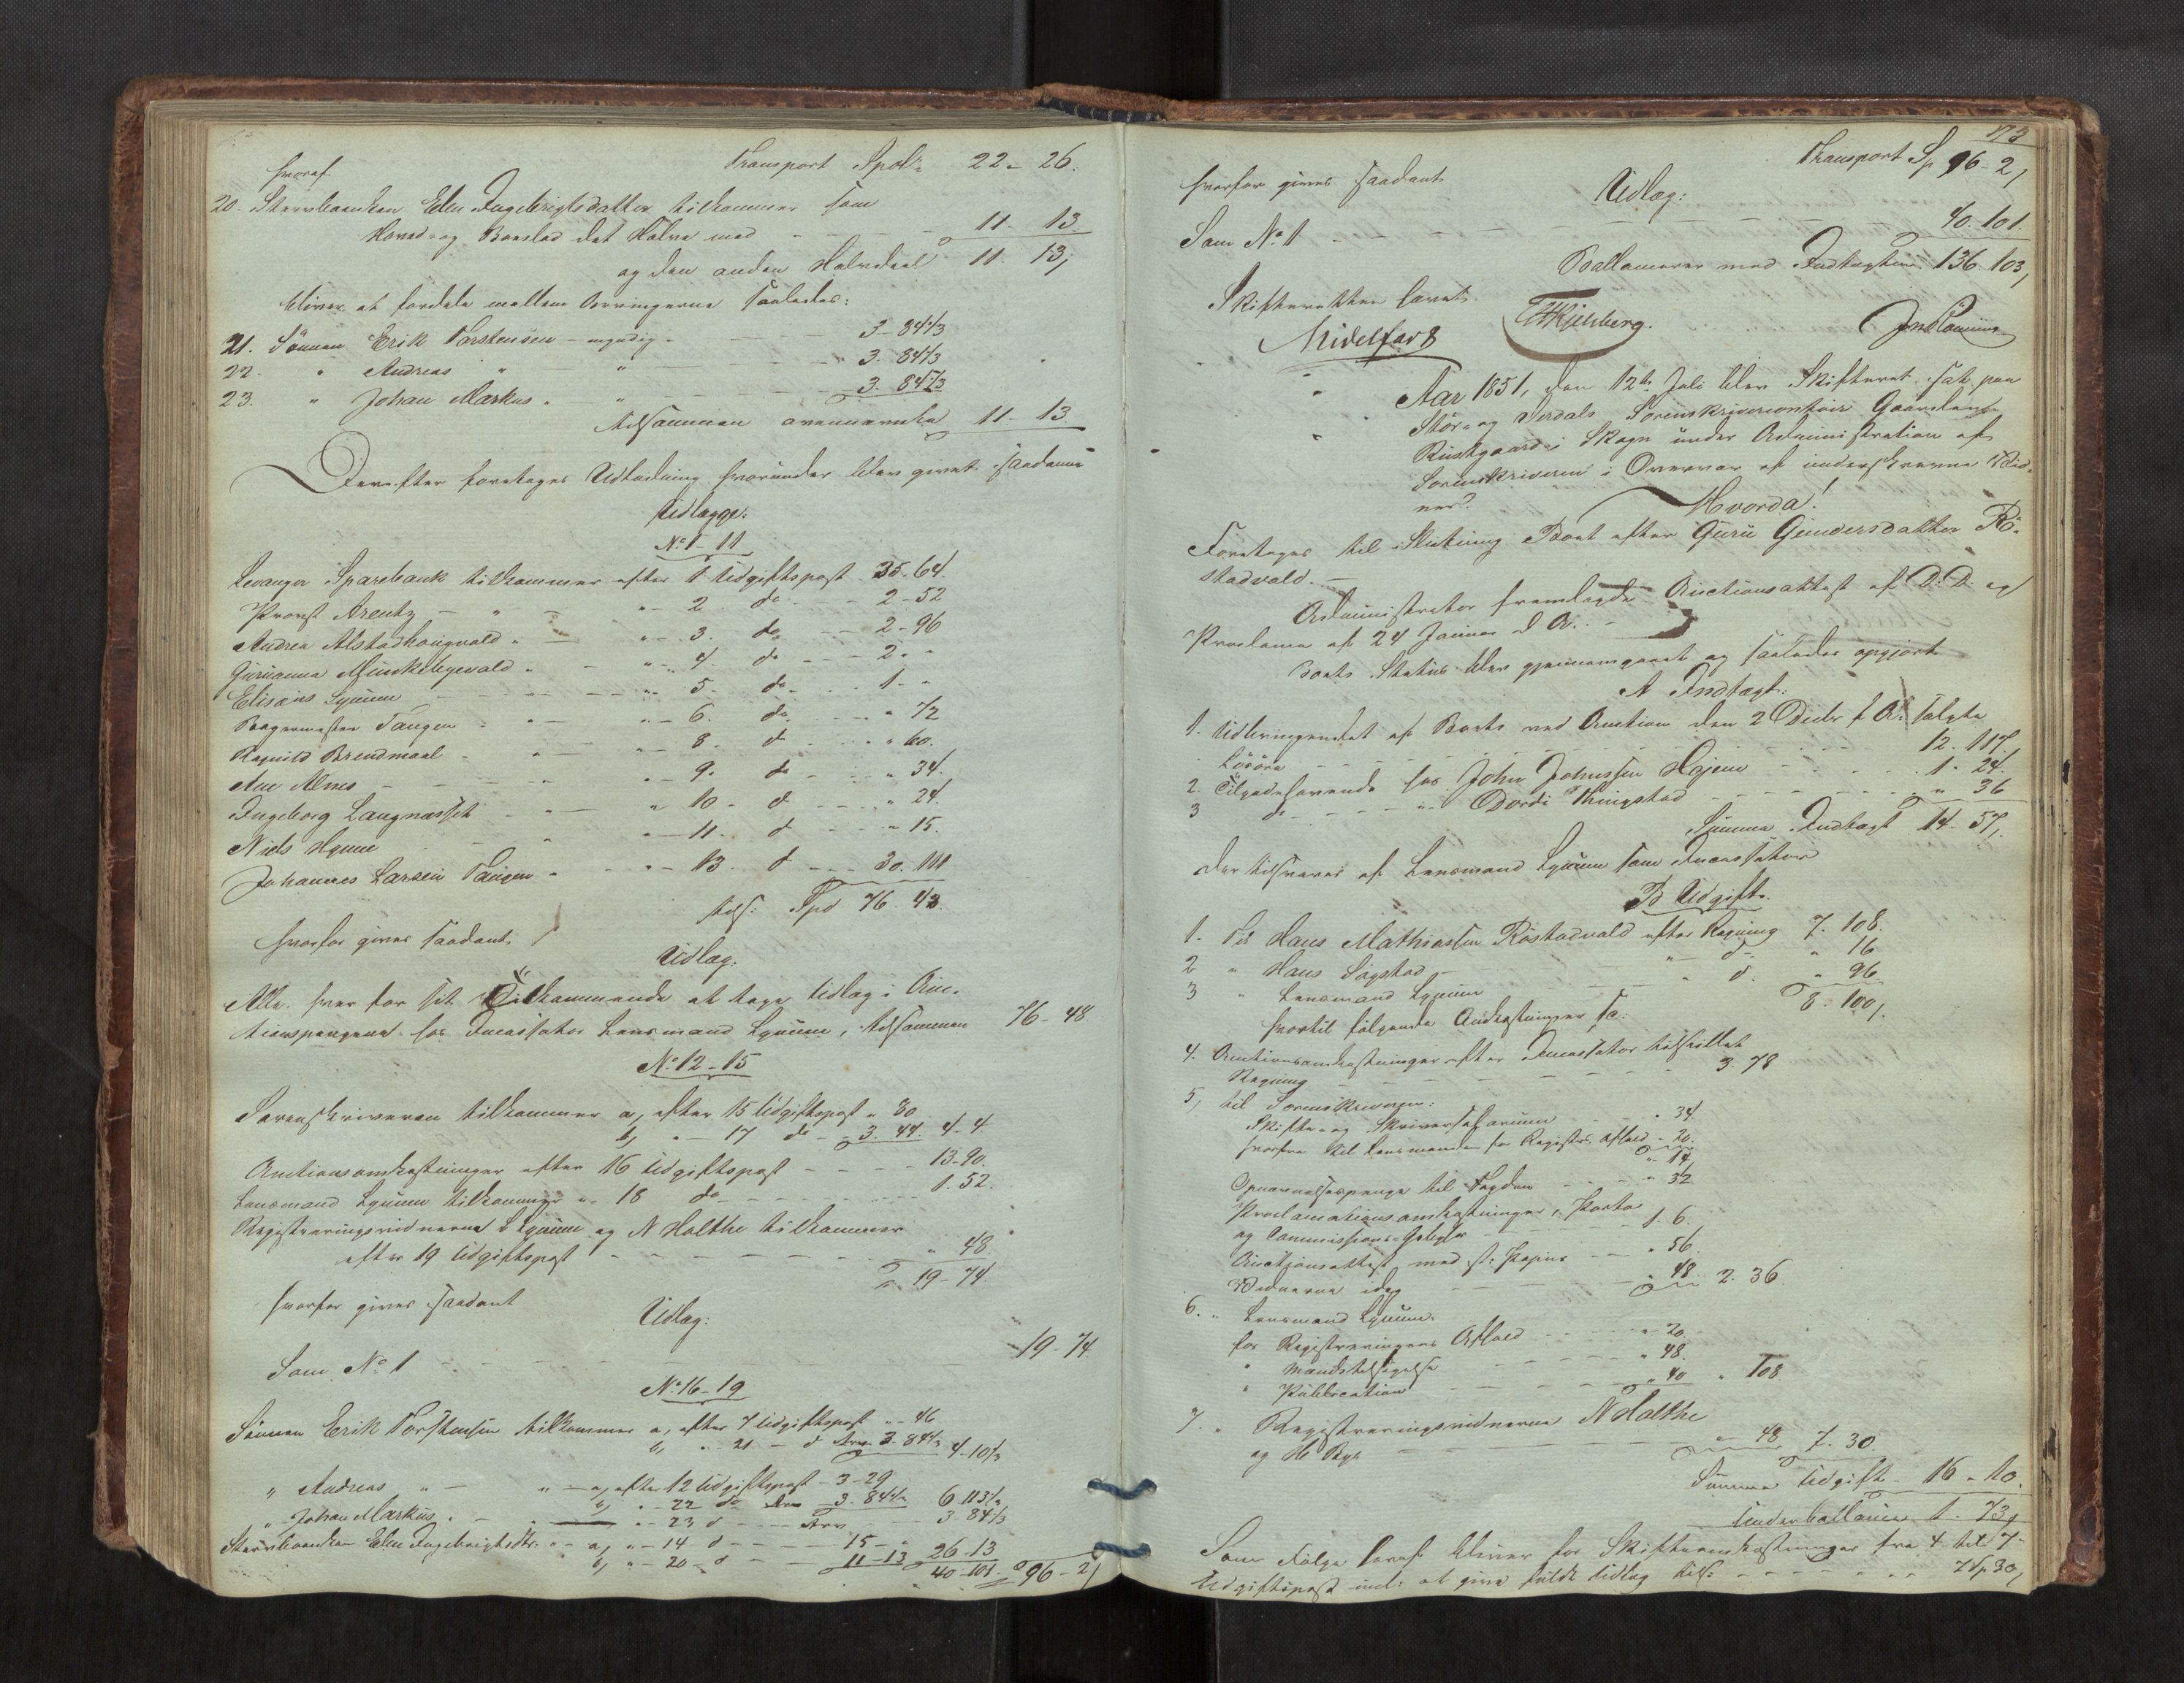 Transport Spd. 22 - 26.
hvoraf
20. Stervboenken Elen Ingebrigtsdatter tilkommer som
Hoved- og Boeslod det Halve med - - 11 - 13
og den anden Halvdeel 11. 13,
bliver at fordele mellem Arvingerne saaledes:
21. Sönnen Erik Torstensen - myndig - 3 - 84 1/3
22. " Andreas " - " - 3. 84 1/3
23. " Johan Markus " - " - 3. 84 1/3
tilsammen ovennævnte 11 - 13
Derefter foretoges Udlodning hvorunder blev givet saadanne
Udlægge:
No 1 - 11
Levanger Sparebank tilkommer efter 1 Udgiftspost 35 - 64.
Provst Arentz - " - " - 2. do - 2 - 52
Andrea Alstadhougvald " - " - 3. do - 2 - 96
Guruanna Munkebyevald " - " - 4. do - 2 - "
Elisæus Lynum - " - 5. do - 1 - "
Bøgermester Tangen - " - 6. do - " 72
Ragnild Brendmoel - " - 8. do - " 60.
Ane Almes - " - 9. do - " 34.
Ingeborg Langnæsset - " 10 - do - " 24.
Niels Hynne " - 11. do - " 15.
Johannes Larsen Tangen " - " 13. do - 30. 111
tils: Spd 76. 48.
hvorfor gives saadant
Udlæg.
Alle hver for sit Tilkommende at tage Udlæg i Auc-
tionspengene hos Incassator Lensmand Lynum, tilsammen 76 - 48
No 12 - 15
Sorenskriveren tilkommer a, efter 15 Udgiftspost " 80
b, " - 17 do - 3. 44. 4 - 4
Auctionsomkostninger efter 16 Udgiftspost - - 13 - 90.
Lensmand Lynum tilkommer " 18 do - - 1. 52.
Registreringsvidnerne L Lynum og N Holthe tilkommer
efter 19 Udgiftspost - - " 48.
19 - 74
hvorfor gives saadant
Udlæg:
Som No 1 - - 19 - 74
No 16 - 19
Sönnen Erik Torstensen tilkommer a, efter 7 Udgiftspost " - 46
b, " - 21 - do Arv 3. 84 1/3 4 - 10 1/3
" Andreas " - " - a, efter 12 Udgiftspost - 3 - 29
b, " - 22 do Arv 3 - 84 1/3 6. 113 1/3
" Johan Markus " - " - 23 do - Arv - 3 84 1/3
Stervboenken Elen Ingebrigtsdtr. " - a, " - 14 do - 15 - "
b, " - 20 - do - 11 - 13 26 - 13
40 - 101. 96 - 2,
73
Transport Sp 96 - 2,
hvorfor gives saadant
Udlæg:
Som No 1 - - 40 - 101.
Ballancerer med Indtægten 136. 103,
Skifteretten hævet.
Midelfart
Kjelsberg.
Aar 1851, den 12te Juli blev Skifteret sat paa
Stör- og Værdals Sorenskrivercontoir Gaarden
Rustgaard i Skogn under Administration af
Sorenskriveren i Overvær af underskrevne Vid-
ner.
Hvorda!
Foretages til Slutning Boet efter Guru Gundersdatter Rö-
stadvald. -
Administrator fremlagde Auctionsattest af D: D: og
Proclama af 24 Januar d A. -
Boets Status blev gjennemgaaet og saaledes opgjort
A Indtægt:
1. Udbringendet af Boets ved Auction den 2 Decbr f A. solgte
Lösöre - - 12. 117.
2. Tilgodehavende hos John Johnssen Hojem - - 1. 24.
3 do - - " Dordi Ringstad - - " 36
Summa Indtægt 14 - 57,
der tilsvares af Lensmand Lynum som Incassator
B Udgift.
1. Til Hans Mathiassen Röstadvald efter Regning 7. 108.
2 " Hans Sögstad - " - do - " 16
3 " Lensmand Lynum " do. " 96
8 - 100,
hvortil følgende Omkostninger sc:
4. Auctionsomkostninger efter Incassator tilstillet
Regning - - 3. 78
5, til Sorenskriveren:
Skifte- og Skriversalarium - " 34
hvorfra til Lensmanden for Registr. Afhold - 20.
" 14
Opnævnelsespenge til Fogden - " 32
Proclamationsomkostninger, Porto
og Commissions-Gebyhr - 1. 6.
Auctionsattest med st: Papiir - " 56.
Vidnerne idag - " 48 2. 36
6. " Lensmand Lynum.
for Registreringens Afhold - " 20.
" Mændstilsigelse - " 48.
" Publication - " 40 " 108
7. " Registreringsvidnerne N Holthe
og H Bye - " 48 7. 30.
Summa Udgift - 16 - 10.
Underballance 1. 73,
Som Følge heraf bliver for Skifteomkostninger fra 4 til 7
Udgiftspost incl: at give fuldt Udlæg tils: - - 7 Sp 30,